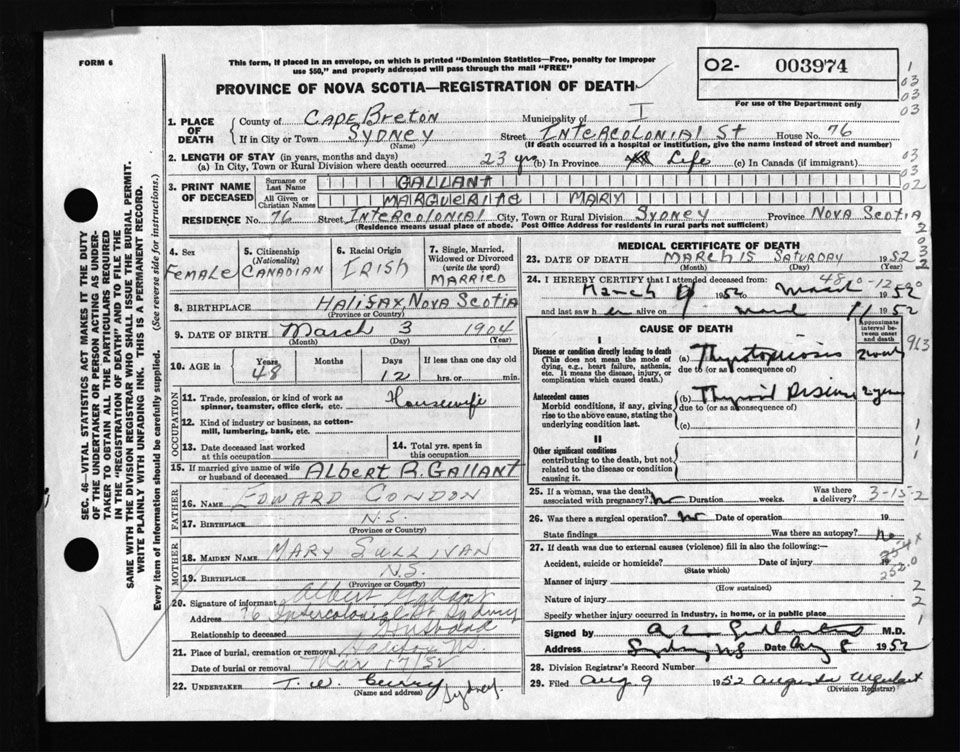 FORM 6
This form, if placed in an envelope, on which is printed "Dominion Statistics—Free, penalty for improper
use $50," and properly addressed will pass through the mail "FREE"
PROVINCE OF NOVA SCOTIA—REGISTRATION OF DEATH
O2- 003974
For use of the Department only
1. PLACE OF DEATH
County of Cape Breton Municipality of I
If in City or Town SYDNEY Street Intercolonial St House No. 76
(Name) (If death occurred in a hospital or institution, give the name instead of street and number)
2. LENGTH OF STAY (in years, months and days)
(a) In City, Town or Rural Division where death occurred 23 yrs (b) In Province Life (c) In Canada (if immigrant)
3. PRINT NAME OF DECEASED
Surname or Last Name GALLANT
All Given or Christian Names MARGUERITE MARY
RESIDENCE No. 76 Street Intercolonial City, Town or Rural Division SYDNEY Province NOVA SCOTIA
(Residence means usual place of abode. Post Office Address for residents in rural parts not sufficient)
4. Sex FEMALE
5. Citizenship (Nationality) CANADIAN
6. Racial Origin IRISH
7. Single, Married, Widowed or Divorced (write the word) MARRIED
8. BIRTHPLACE Halifax, Nova Scotia
(Province or Country)
9. DATE OF BIRTH March 3 1904
(Month) (Day) (Year)
10. AGE in Years 48 Months Days 12 If less than one day old hrs. or min.
OCCUPATION
11. Trade, profession, or kind of work as spinner, teamster, office clerk, etc. Housewife
12. Kind of industry or business, as cotton-mill, lumbering, bank, etc.
13. Date deceased last worked at this occupation
14. Total yrs. spent in this occupation
15. If married give name of wife or husband of deceased Albert R. Gallant
FATHER
16. NAME EDWARD CONDON
17. BIRTHPLACE N.S.
(Province or Country)
MOTHER
18. MAIDEN NAME MARY SULLIVAN
19. BIRTHPLACE N.S.
(Province or Country)
20. Signature of informant Albert Gallant
Address 76 Intercolonial St Sydney
Relationship to deceased Husband
21. Place of burial, cremation or removal Halifax N.S.
Date of burial or removal Mar 17/52
22. UNDERTAKER T. W. Curry Sydney
(Name and address)
MEDICAL CERTIFICATE OF DEATH
23. DATE OF DEATH MARCH 15 SATURDAY 1952
(Month) (Day) (Year)
24. I HEREBY CERTIFY that I attended deceased from
March 1952 to March 1952
and last saw her alive on March 11 1952
CAUSE OF DEATH
Approximate interval between onset and death
I
Disease or condition directly leading to death
(This does not mean the mode of dying, e.g., heart failure, asthenia, etc. It means the disease, injury, or complication which caused death.)
(a)
due to (or as consequence of)
Antecedent causes
Morbid conditions, if any, giving rise to the above cause, stating the underlying condition last.
(b) Thyroid 2 years
due to (or as a consequence of)
(c)
II
Other significant conditions
contributing to the death, but not related to the disease or condition causing it.
25. If a woman, was the death associated with pregnancy? no Duration weeks. Was there a delivery?
3-15-2
26. Was there a surgical operation? no Date of operation 19
State findings Was there an autopsy? no
27. If death was due to external causes (violence) fill in also the following:—
Accident, suicide or homicide? (State which)
Manner of injury (How sustained)
Nature of injury
Specify whether injury occurred in industry, in home, or in public place
Signed by M.D.
Address Sydney NS Date Aug 8 1952
28. Division Registrar's Record Number
29. Filed Aug 9 1952 Augusta Urquhart
(Division Registrar)
SEC. 46—VITAL STATISTICS ACT MAKES IT THE DUTY
OF THE UNDERTAKER OR PERSON ACTING AS UNDER-
TAKER TO OBTAIN ALL THE PARTICULARS REQUIRED
IN THE "REGISTRATION OF DEATH" AND TO FILE THE
SAME WITH THE DIVISION REGISTRAR WHO SHALL ISSUE THE BURIAL PERMIT.
WRITE PLAINLY WITH UNFADING INK. THIS IS A PERMANENT RECORD.
Every item of information should be carefully supplied. (See reverse side for instructions.)